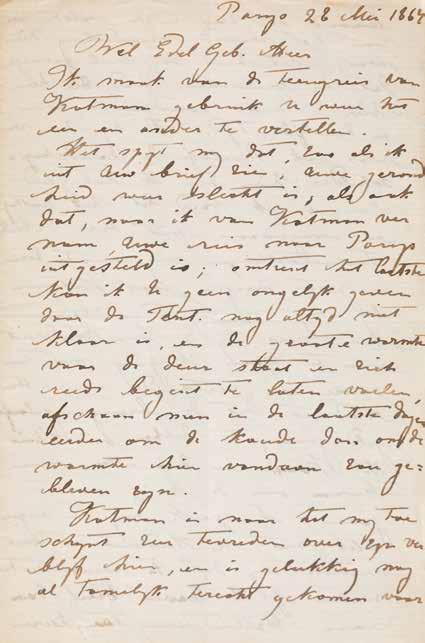 Parys 28 Mei 1867
Wel Edel Geb. Heer
Ik maak van de terugreis van
Katman gebruik u weer het
een en ander te vertellen.
Het spyt my dat, zoo als ik
uit uw brief zie, uwe gezond
heid weer slecht is, als ook
dat, naar ik van Katman ver
nam, uwe reis naar Parys
uitgesteld is; omtrent het laatste
kan ik U geen ongelyk geven
daar de Tent. nog altyd niet
klaar is, en de groote warmte
voor de deur staat en zich
reeds begint te laten voelen,
ofschoon men in de laatste dagen
eerder om de koude dan om de
warmte hier vandaan zou ge=
bleven zyn.
Katman is naar het my toe
schynt zeer tevreden over zyn ver
blyf hier, en is gelukkig nog
al tamelyk terecht gekomen voor